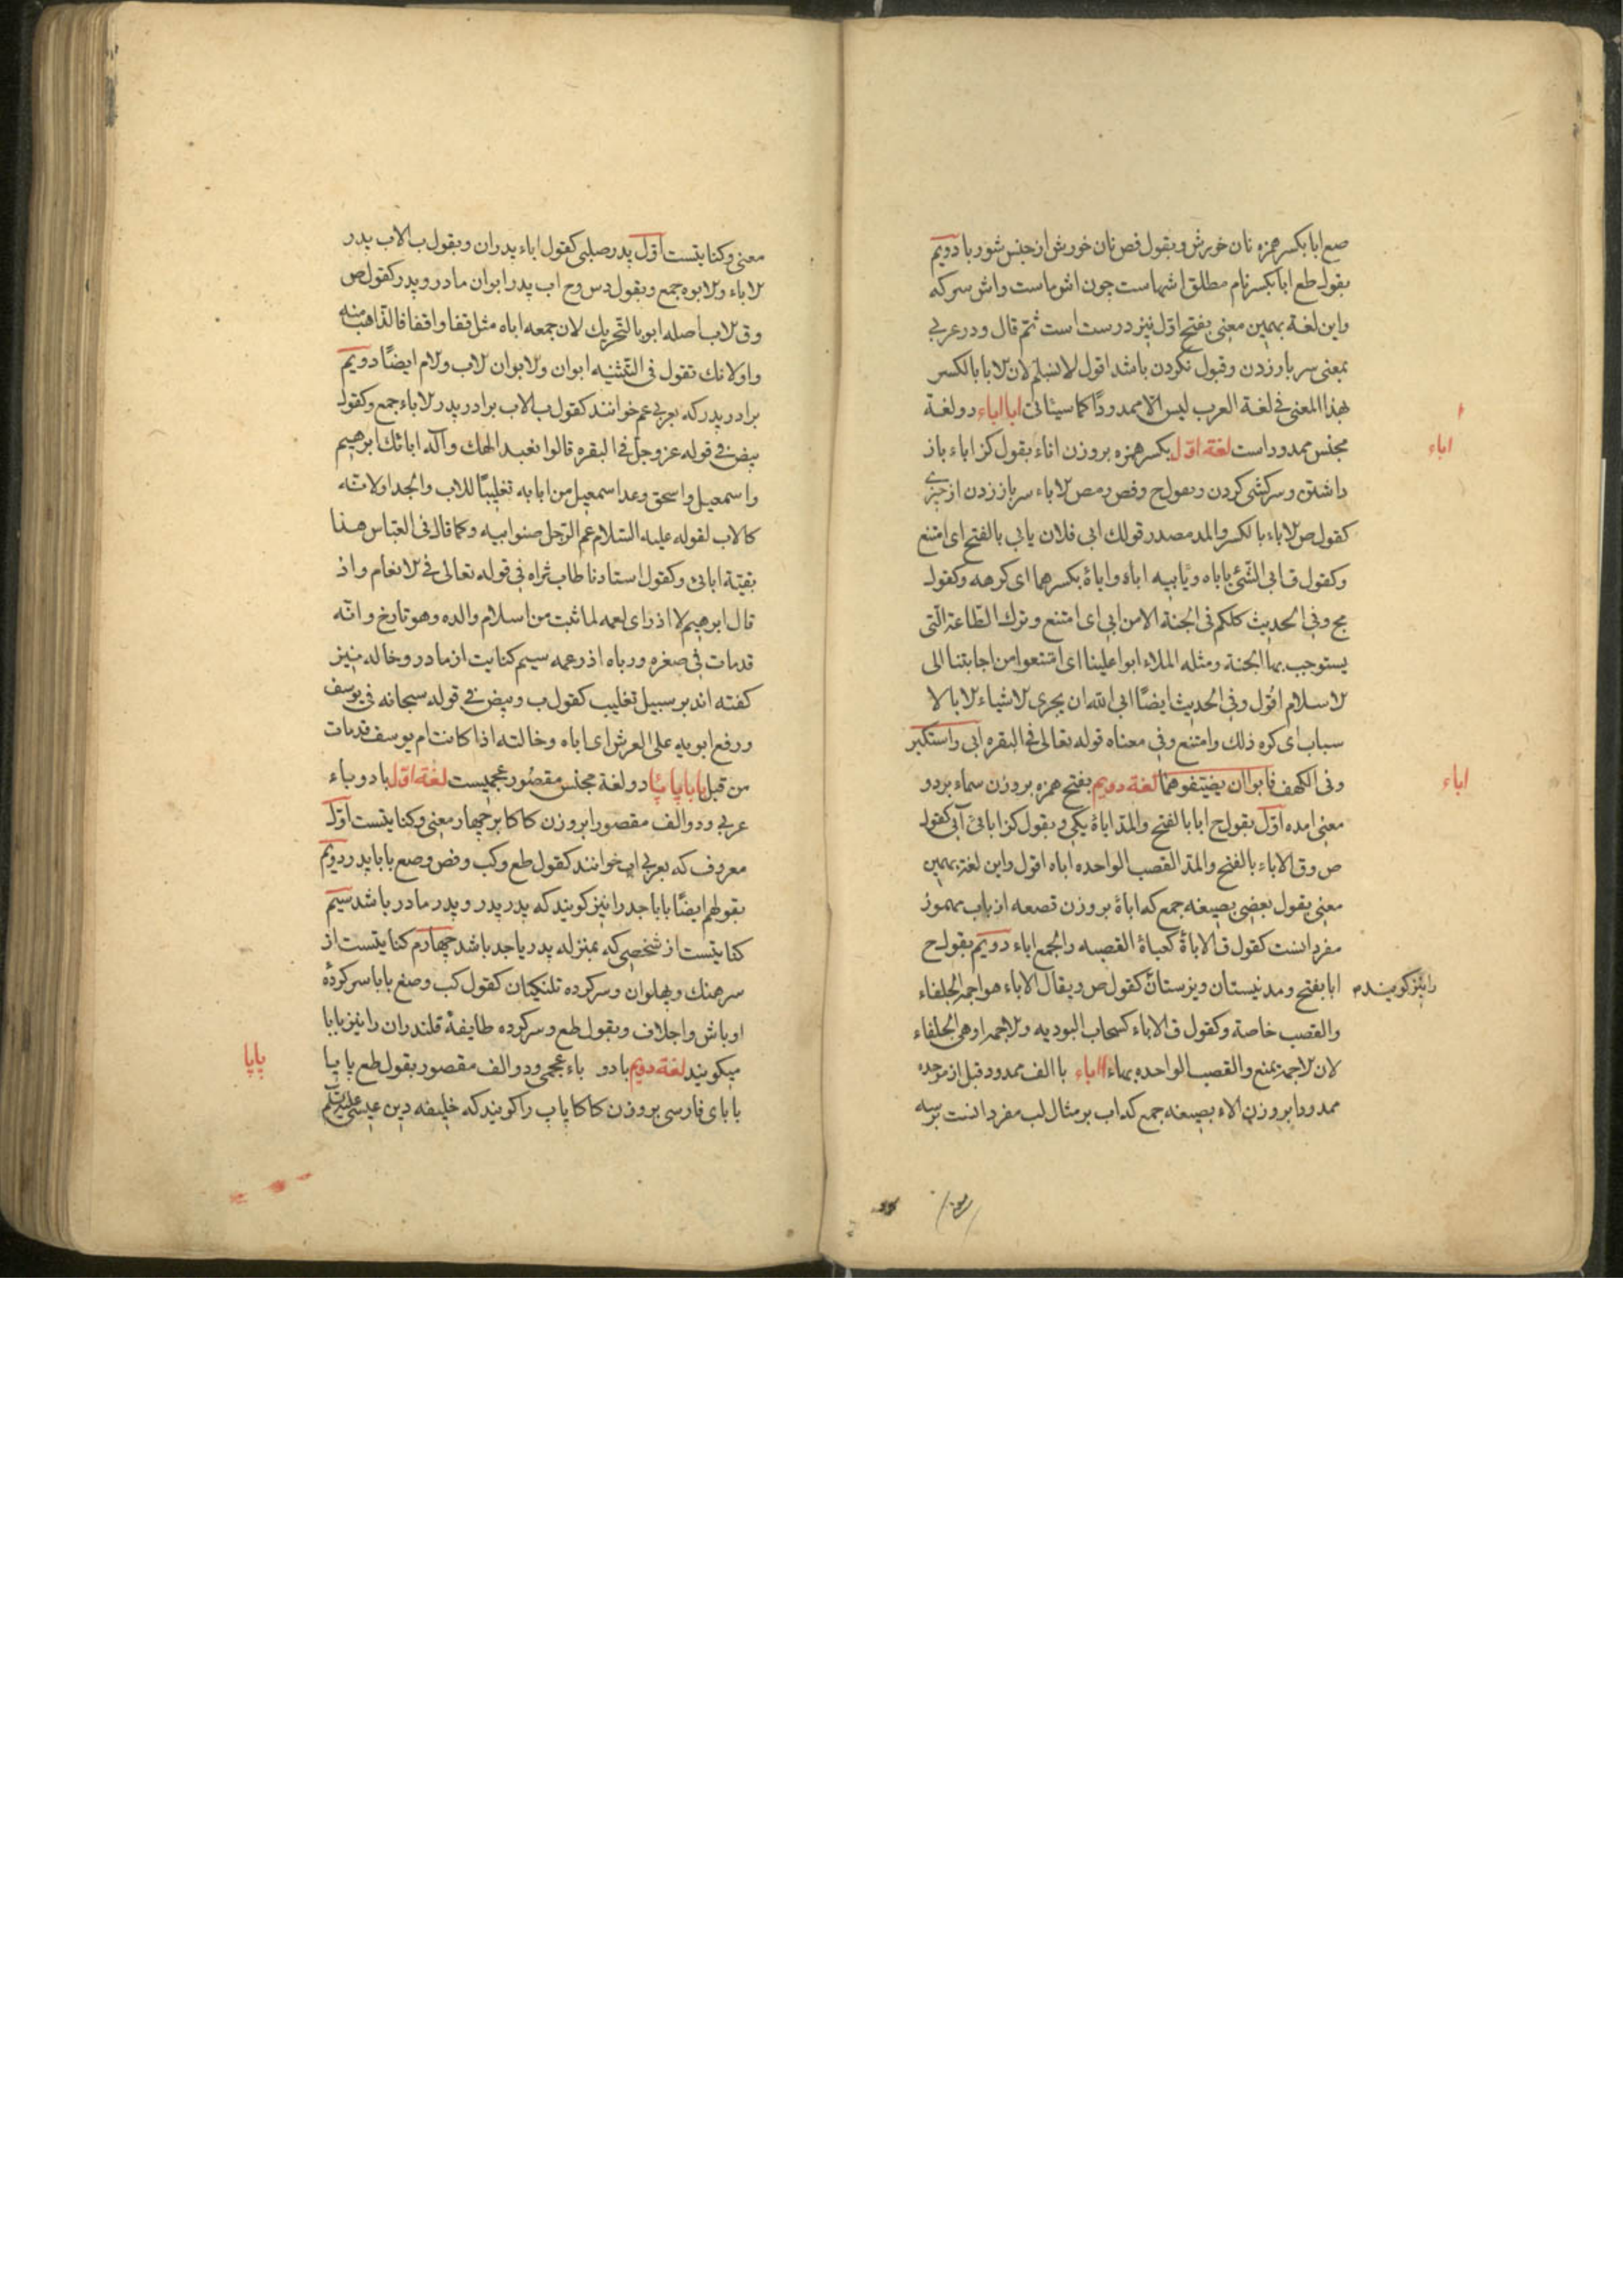 صع ابا بکسر همزه نان خورش و بقول فص نان خورش از جنس شوربا دویم
بقول طع ابا بکسر نام مطلق اشهاست چون اش ماست و اش سرکه
و این لغة بهمین معنی بفتح اول نیز درست است ثم قال و در عربی
بمعنی سر باز زدن و قبول نکردن باشد اقول لا نسلم لان الابا بالکسر
بهذا المعنی فی لغة العرب لیس الا ممدودا کما سیئاتی ابا اباء دو لغة
اباء
مجنس ممدود است لغة اول بکسر همزه بر وزن اناء بقول کز اباء باز
داشتن و سرکشی کردن و بقول ح و فص و مص الاباء سر باز زدن از چیزی
کقول ص الاباء بالکسر والمد مصدر قولک ابی فلان یابی بالفتح ای امتنع
و کقول ق ابی الشئ یاباه و یابیه اباء و اباءة بکسرهما ای کرهه و کقول
مج و فی الحدیث کلکم فی الجنة الا من ابی ای امتنع و ترک الطاعة التی
یستوجب بها الجنة و مثله الملاء ابوا علینا ای امتنعوا من اجابتنا الی
الاسلام اقول و فی الحدیث ایضا ابی الله ان یجری الاشیاء الا بالا
سباب ای کره ذلک و امتنع و فی معناه قوله تعالی فی البقره ابی واستکبر
اباء
و فی الکهف فابوا ان یضیفوهما لغة دویم بفتح همزه بر وزن سماء بر دو
معنی امده اول بقول ح ابا بالفتح والمد اباءة یکی و بقول کز ابائ آبی کقول
ص و ق الاباء بالفتح والمد القصب الواحده اباه اقول و این لغة بهمین
معنی بقول بعضی بصیغه جمع که اباءة بر وزن قصعه از باب مهموز
مفرد انست کقول ق الاباءة کعباءة القصبه والجمع اباء دویم بقول ح
ابا بفتح و مد نیستان و یزستان کقول ص و یقال الاباء هو اجمة الحلفاء
را نیز کویند م
والقصب خاصة و کقول ق الاباء کسحاب البودیه والاجمه او هی الحلفاء
لان الاجمة یمنع والقصب الواحده بهاء اباء با الف ممدود قبل از موحده
ممدودا بر وزن الاء بصیغه جمع که اب بر مثال لب مفرد انست بر سه
معنی و کنایتست اول پدر صلبی کقول اباء پدران و بقول ب الاب پدر
الاباء والابوه جمع و بقول دس و ح اب پدر ابوان مادر و پدر کقول ص
و ق الاب اصله ابو بالتحریک لان جمعه اباه مثل قفا و اقفا فالذاهب منه
واو لانک تقول فی التثنیه ابوان والابوان الاب والام ایضا دویم
برادر پدر که بعربی عم خوانند کقول ب الاب برادر پدر الاباء جمع و کقول
بیض فی قوله عز وجل فی البقره قالوا نعبد الهک و آله ابائک ابرهیم
و اسمعیل و اسحق وعد اسمعیل من ابابه تغلیبا للاب والجد اولانه
کالاب لقوله علیه السلام عم الرجل صنو ابیه و کما قال فی العباس هذا
بقیة ابائی و کقول استادنا طاب ثراه فی قوله تعالی فی الانعام و اذ
قال ابرهیم لا اذر ای لعمه لما ثبت من اسلام والده وهو تارخ و انه
قد مات فی صغره و رباه اذر عمه سیم کنایت از مادر و خاله نیز
کفته اند بر سبیل تغلیب کقول ب و بیض فی قوله سبحانه فی یوسف
و رفع ابویه علی العرش ای اباه و خالته اذا کانت ام یوسف قد مات
من قبل بابا پاپا دو لغة مجنس مقصور عجمیست لغة اول با دو باء
عربی و دو الف مقصورا بر وزن کاکا بر چهار معنی و کنایتست اول
معروف که بعربی اب خوانند کقول طع و کب و فص و صع بابا پدر دویم
بقولهم ایضا بابا جد را نیز کویند که پدر پدر و پدر مادر باشد سیم
کنایتست از شخصی که بمنزله پدر یا جد باشد چهارم کنایتست از
سرهنک و پهلوان و سر کرده تلنکیان کقول کب و صع بابا سر کرده
اوباش و اجلاف و بقول طع و سر کرده طایفهٔ قلندران را نیز بابا
پاپا
میکویند لغة دویم با دو باء عجمی و دو الف مقصور بقول طع پاپا
با بای فارسی بر وزن کاکا پاپ را کویند که خلیفه دین عیسی علیه السلام